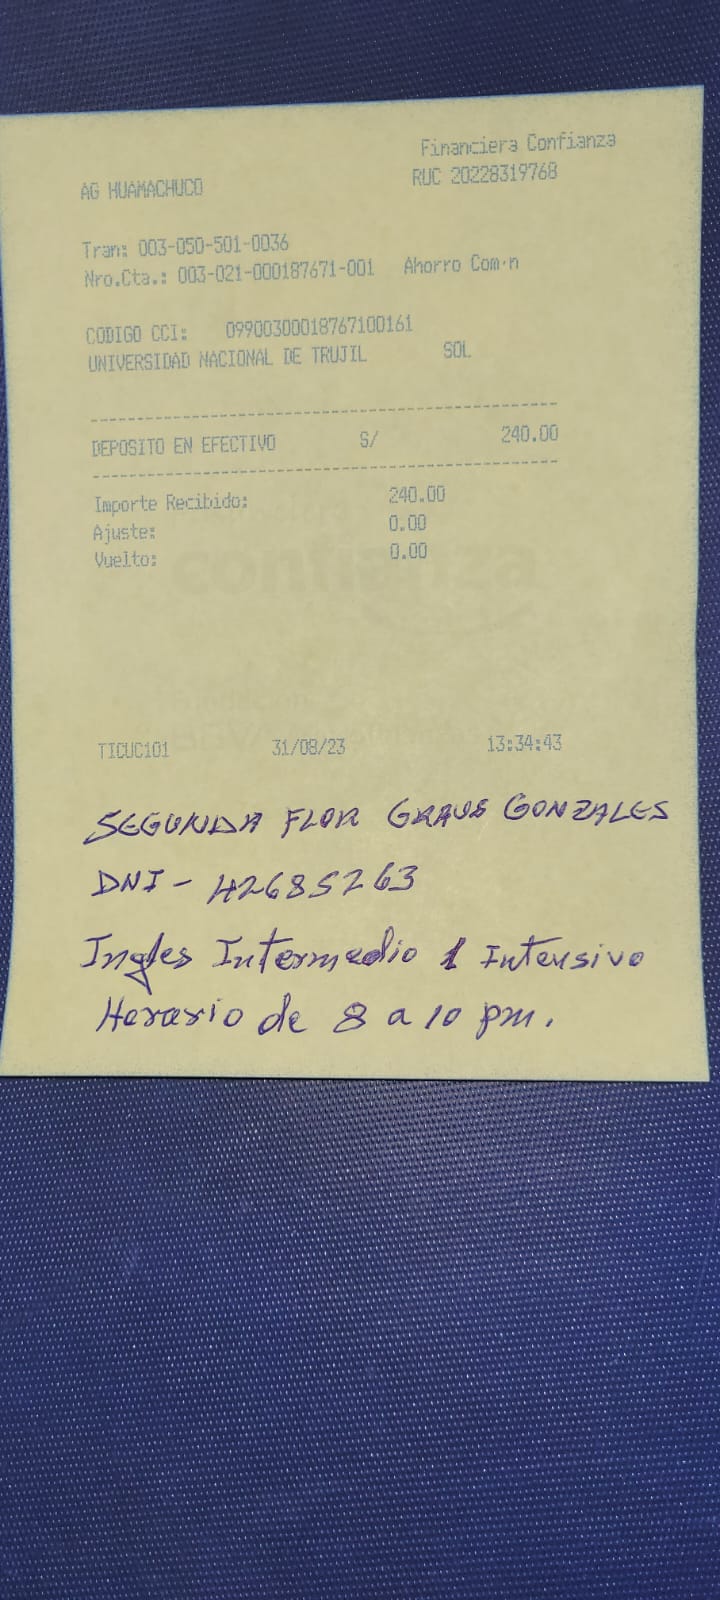 Financiera Confianza
AG HUAMACHUCO RUC 20228319768
Tran: 003-050-501-0036
Nro.Cta.: 003-021-000187671-001 Ahorro Com·n
CODIGO CCI: 09900300018767100161
UNIVERSIDAD NACIONAL DE TRUJIL SOL
DEPOSITO EN EFECTIVO S/ 240.00
Importe Recibido: 240.00
Ajuste: 0.00
Vuelto: 0.00
confianza
TICUC101 31/08/23 13:34:43
SEGUNDA FLOR GRAUS GONZALES
DNI - 42685263
Ingles Intermedio 1 Intensivo
Horario de 8 a 10 pm.